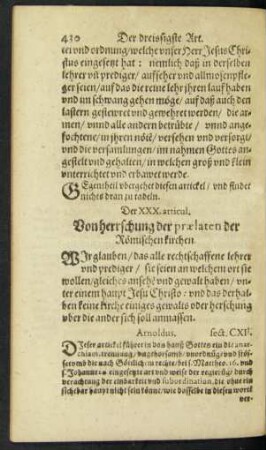 430 Der dreissigste Art.
tei vnd ordnung/welche vnser Herr Jesus Chri-
stus eingesetzt hat: nemlich daß in derselben
lehrer vñ prediger/ auffseher vnd allmosenpfle-
ger seien/auf das die reine lehr ihren lauf haben
vnd im schwang gehen möge/ auf daß auch den
lastern gesteuret vnd gewehret werden/ die ar-
men/ vnnd alle andern betrübte/ vnnd ange-
fochtene/ in jhren nöte/ versehen vnd versorgt/
vnd die versamlungen/ im nahmen Gottes an-
gestelt vnd gehalten/ in welchen groß vnd klein
vnterrichtet vnd erbawet werde.
GEgentheil vbergehet diesen artickel/ vnd findet
nichts dran zu tadeln.
Der XXX. articul.
Von herrschung der prælaten der
Römischen kirchen.
WIr glauben/ das alle rechtschaffene lehrer
vnd prediger/ sie seien an welchem ort sie
wollen/gleiches ansehē vnd gewalt haben/ vn-
ter einem haupt Jesu Christo: vnd das derhal-
ben keine kirche einiges gewalts oder herschung
vber die ander sich soll anmassen.
Arnoldus. sect. CXIV.
DIeser artickel führet in das hauß Gottes ein die anar-
chiam, trennung/ vngehorsamb/ vnordnung/ vnd
die nach Göttlichem rechte/ bei S. Mattheo. 16. vnd
S. Johann. eingesetzte art vnd weise der regierūg: durch
verachtung der einbarkeit vnd subordination, die ohn ein
sichtbar haupt nicht sein könne/ wie dasselbe in diesen worten
ver-